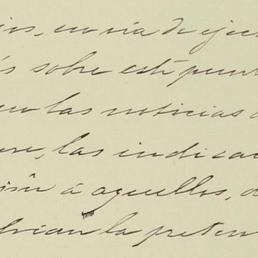 ios, en via de ejec
is sobre este punt
en las noticias d
ere, las indica
isin á aquellos, d
brian la preten